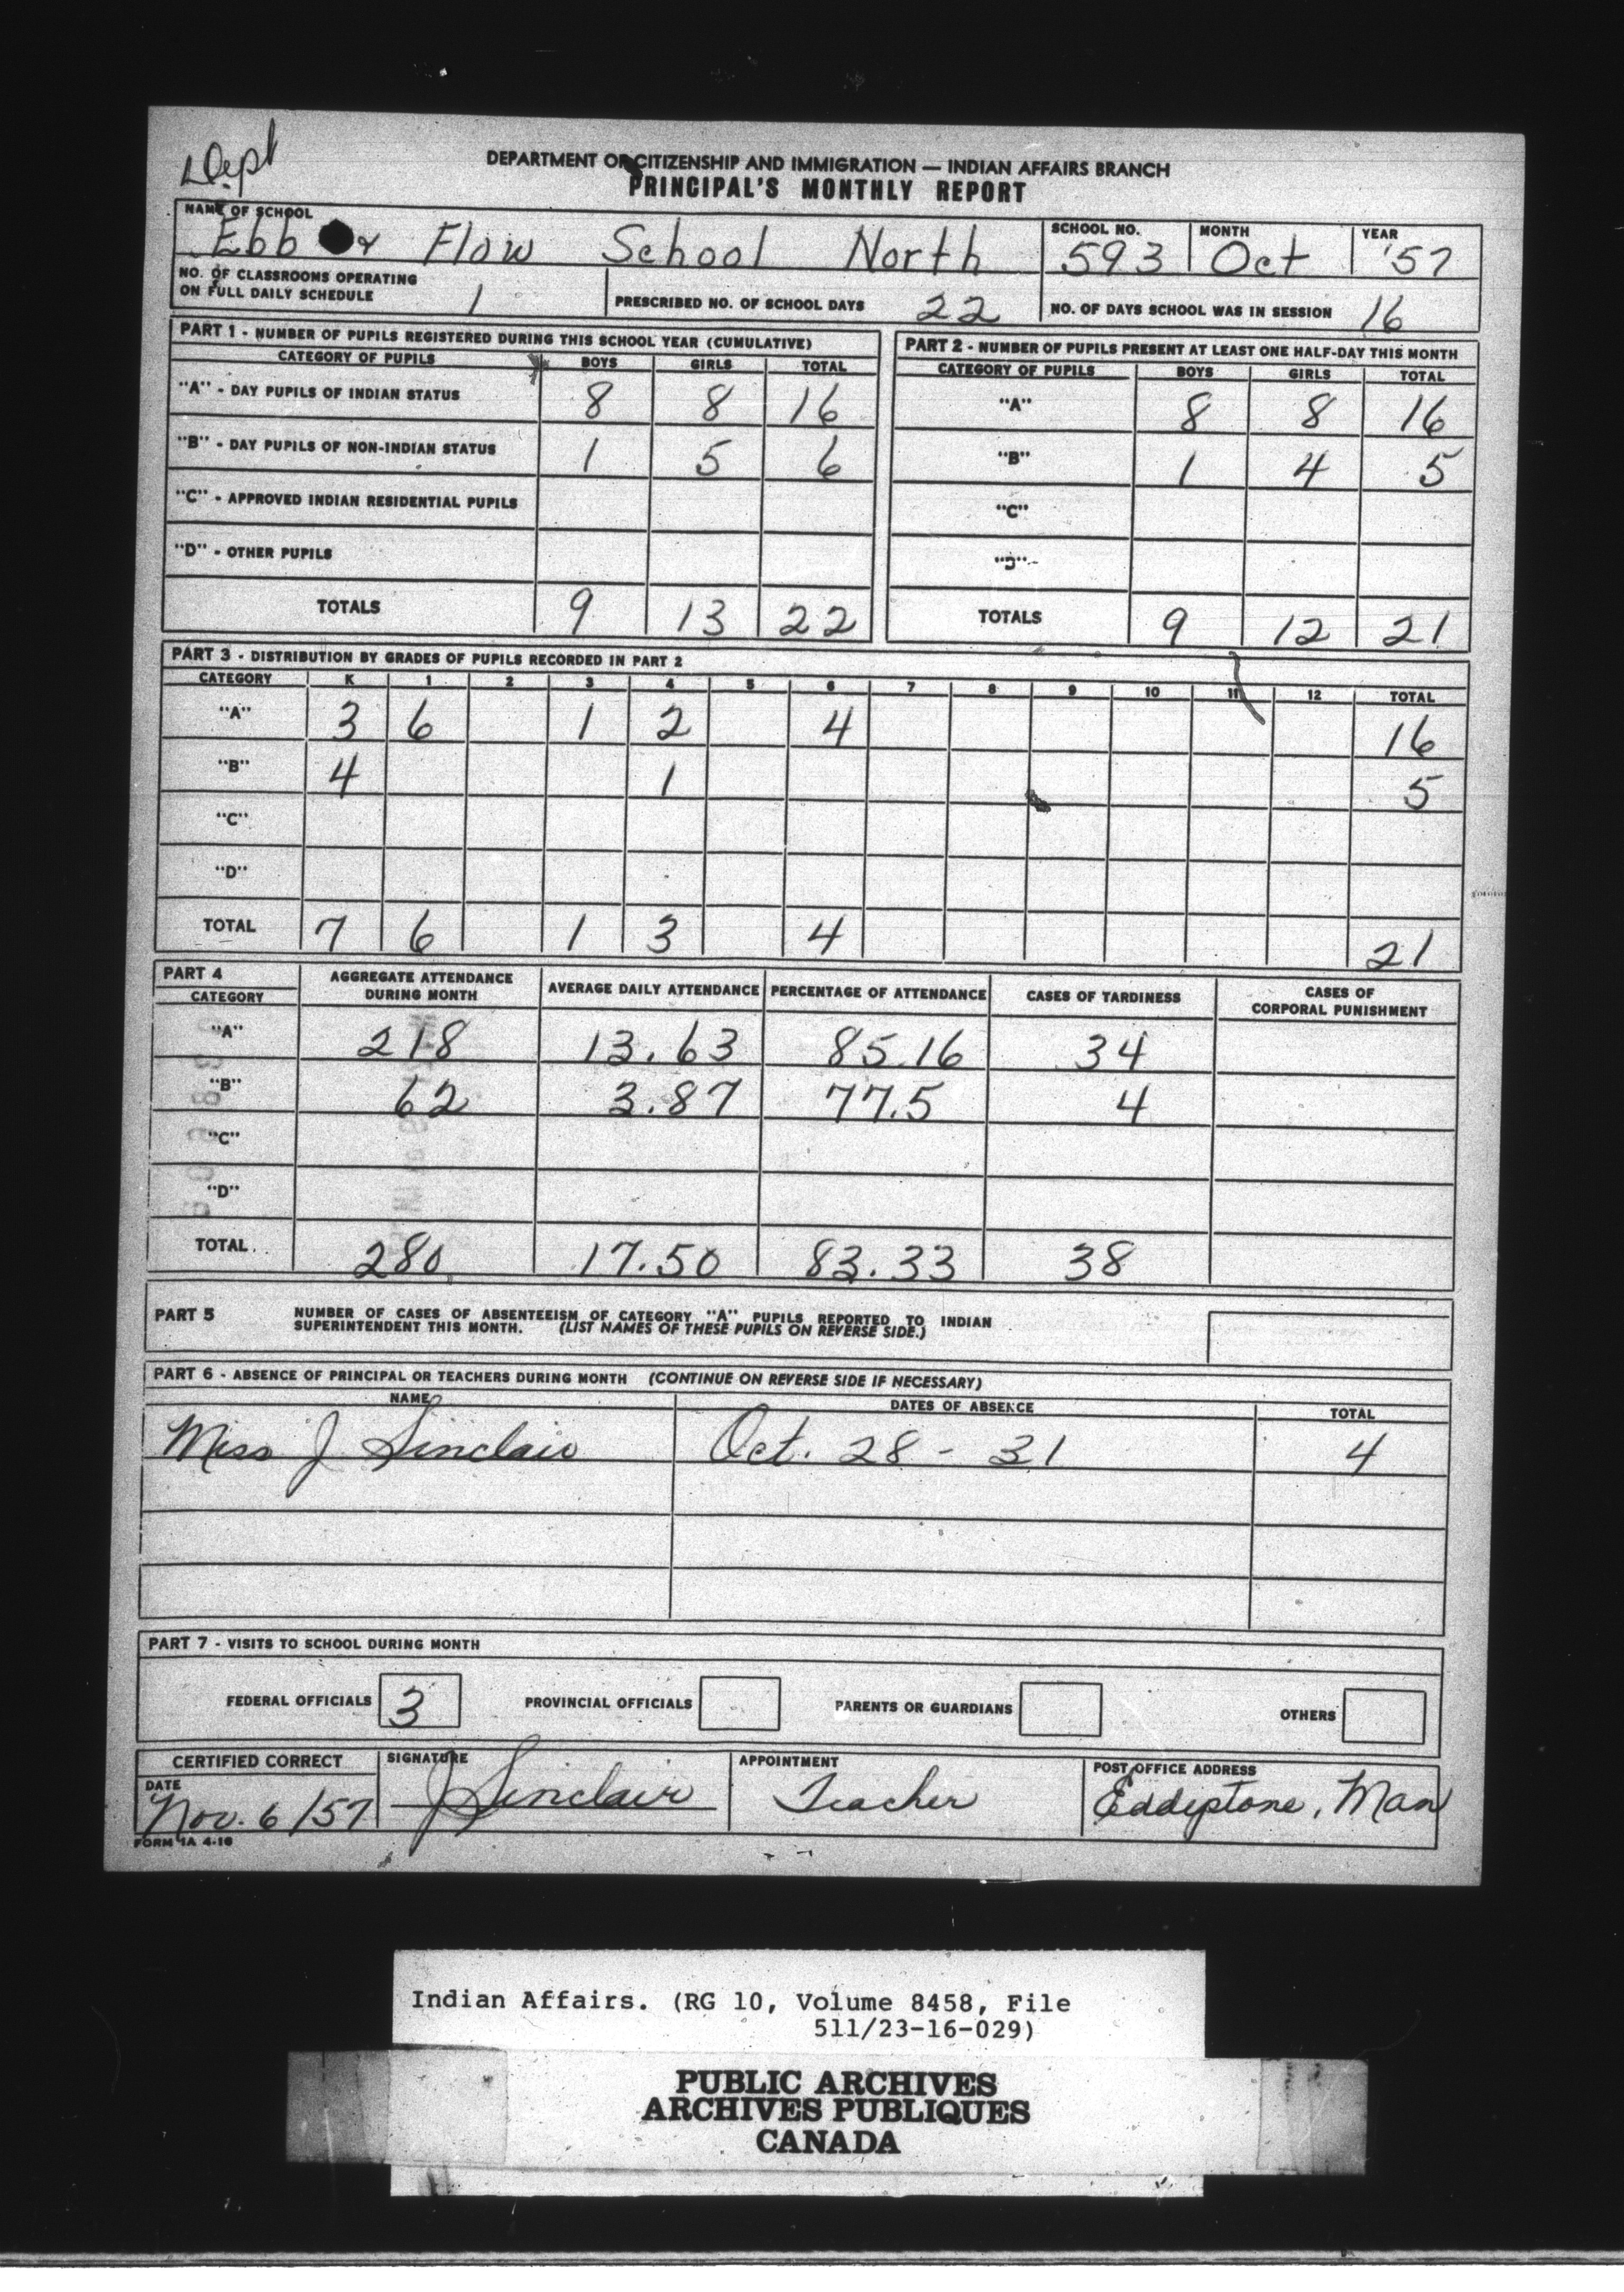 Dept
DEPARTMENT OF CITIZENSHIP AND IMMIGRATION — INDIAN AFFAIRS BRANCH
PRINCIPAL'S MONTHLY REPORT
NAME OF SCHOOL SCHOOL NO. MONTH YEAR
Ebb & Flow School North 593 Oct '57
NO. OF CLASSROOMS OPERATING
ON FULL DAILY SCHEDULE 1 PRESCRIBED NO. OF SCHOOL DAYS 22 NO. OF DAYS SCHOOL WAS IN SESSION 16
PART 1 - NUMBER OF PUPILS REGISTERED DURING THIS SCHOOL YEAR (CUMULATIVE)
CATEGORY OF PUPILS BOYS GIRLS TOTAL
"A" - DAY PUPILS OF INDIAN STATUS 8 8 16
"B" - DAY PUPILS OF NON-INDIAN STATUS 1 5 6
"C" - APPROVED INDIAN RESIDENTIAL PUPILS
"D" - OTHER PUPILS
TOTALS 9 13 22
PART 2 - NUMBER OF PUPILS PRESENT AT LEAST ONE HALF-DAY THIS MONTH
CATEGORY OF PUPILS BOYS GIRLS TOTAL
"A" 8 8 16
"B" 1 4 5
"C"
"D"
TOTALS 9 12 21
PART 3 - DISTRIBUTION BY GRADES OF PUPILS RECORDED IN PART 2
CATEGORY K 1 2 3 4 5 6 7 8 9 10 11 12 TOTAL
"A" 3 6 1 2 4 16
"B" 4 1 5
"C"
"D"
TOTAL 7 6 1 3 4 21
PART 4
CATEGORY AGGREGATE ATTENDANCE DURING MONTH AVERAGE DAILY ATTENDANCE PERCENTAGE OF ATTENDANCE CASES OF TARDINESS CASES OF CORPORAL PUNISHMENT
"A" 218 13.63 85.16 34
"B" 62 3.87 77.5 4
"C"
"D"
TOTAL 280 17.50 83.33 38
PART 5 NUMBER OF CASES OF ABSENTEEISM OF CATEGORY "A" PUPILS REPORTED TO INDIAN
SUPERINTENDENT THIS MONTH. (LIST NAMES OF THESE PUPILS ON REVERSE SIDE.)
PART 6 - ABSENCE OF PRINCIPAL OR TEACHERS DURING MONTH (CONTINUE ON REVERSE SIDE IF NECESSARY)
NAME DATES OF ABSENCE TOTAL
Miss J Sinclair Oct. 28 - 31 4
PART 7 - VISITS TO SCHOOL DURING MONTH
FEDERAL OFFICIALS 3 PROVINCIAL OFFICIALS PARENTS OR GUARDIANS OTHERS
CERTIFIED CORRECT SIGNATURE APPOINTMENT POST OFFICE ADDRESS
DATE
Nov. 6/57 J Sinclair Teacher Eddystone, Man
FORM 1A 4-16
Indian Affairs. (RG 10, Volume 8458, File
511/23-16-029)
PUBLIC ARCHIVES
ARCHIVES PUBLIQUES
CANADA